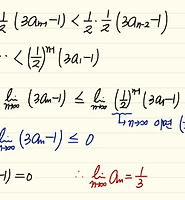 1/2 (3aₙ₋₁ − 1) < 1/2 · 1/2 (3aₙ₋₂ − 1)
·· < (1/2)ⁿ⁻¹ (3a₁ − 1)
lim n→∞ (3aₙ − 1) ≤ lim n→∞ (1/2)ⁿ⁻¹ (3a₁ − 1)
n→∞
lim n→∞ (3aₙ − 1) ≤ 0
−1) = 0 ∴ lim n→∞ aₙ = 1/3